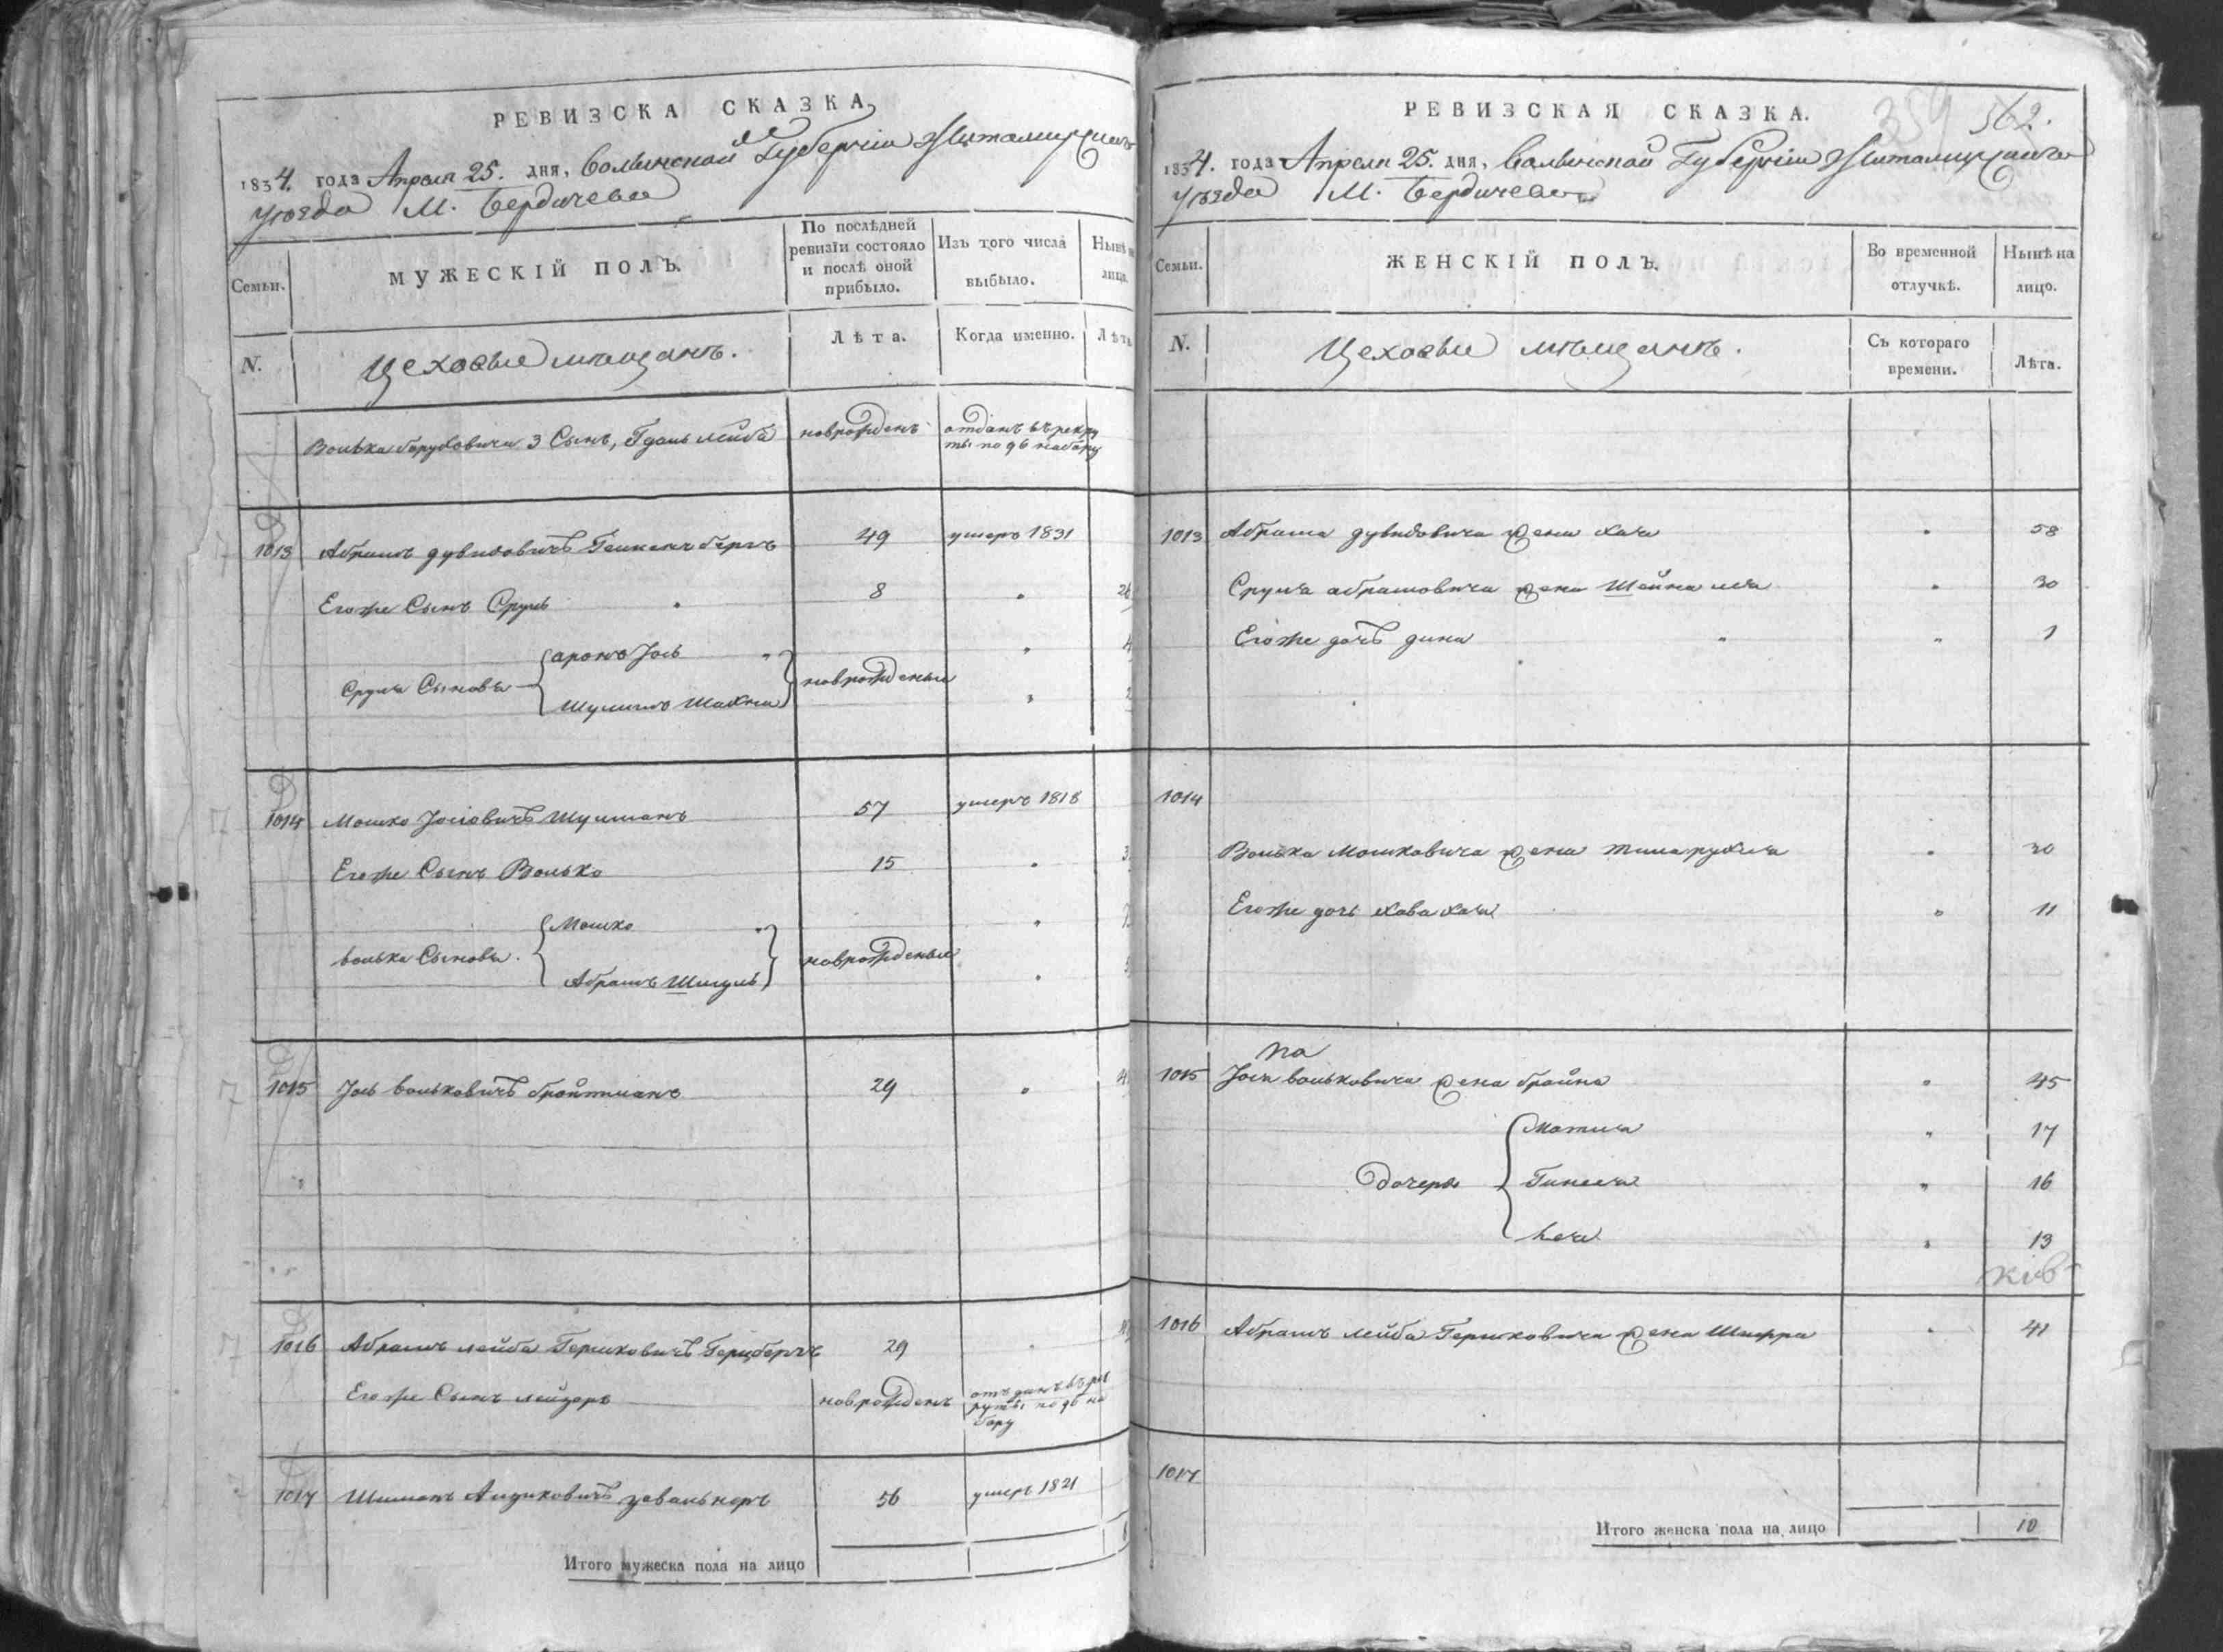 РЕВИЗСКА СКАЗКА
1834. года Апреля 25. дня, Волынской Губерніи Житомирскаго
Уѣзда М. Бердичева
Семьи.
МУЖЕСКІЙ ПОЛЪ.
По послѣдней
ревизіи состояло
и послѣ оной
прибыло.
Изъ того числа
выбыло.
Нынѣ на
лицо.
N.
Цеховые мѣщанъ.
Лѣта.
Когда именно.
Лѣта
Волька Боруховича 3 Сынъ, Лейба новрожденъ отданъ въ рекру
ты по 96 набору
1013 Абрамъ Дувидовичъ 49 умеръ 1831
Егоже Сынъ Сруль 8 26
Сруля Сыновья Аронъ Іось 4
Шулимъ Шахна новрожденыи 2
1014 Мошко Іосіовичъ Шулманъ 57 умеръ 1818
Егоже Сынъ Волько 15
Волька Сыновья. Мошко
Абрамъ Шмуль новрожденыи
1015 Іось Вольковичъ Бройтманъ 29
1016 Абрамъ Лейба Гершковичъ Герцбергъ 29
Егоже Сынъ Лейзоръ новрожденъ отъданъ въ рек
руты по 96 на
бору
1017 Шиманъ 56 умеръ 1821
Итого мужеска пола на лицо
РЕВИЗСКАЯ СКАЗКА.
359 562.
1834. года Апреля 25. дня, Волынской Губерніи Житомирскаго
Уѣзда М. Бердичева
Семьи.
ЖЕНСКІЙ ПОЛЪ.
Во временной
отлучкѣ.
Нынѣ на
лицо.
N.
Цеховые мѣщанъ.
Съ котораго
времени.
Лѣта.
1013 Абрама Дувидовича жена Хая 58
Сруля Абрамовича жена Шейна Лея 30
Егоже дочь Дина 1
1014
Волька Мошковича жена 30
Егоже дочь Хава Хая 11
1015 Іося Вольковича жена Брайна 45
Дочеры Матля 17
Гинеся 16
Нехя 13
1016 Абрамъ Лейба Гершковича жена Шифра 41
1017
Итого женска пола на лицо 10